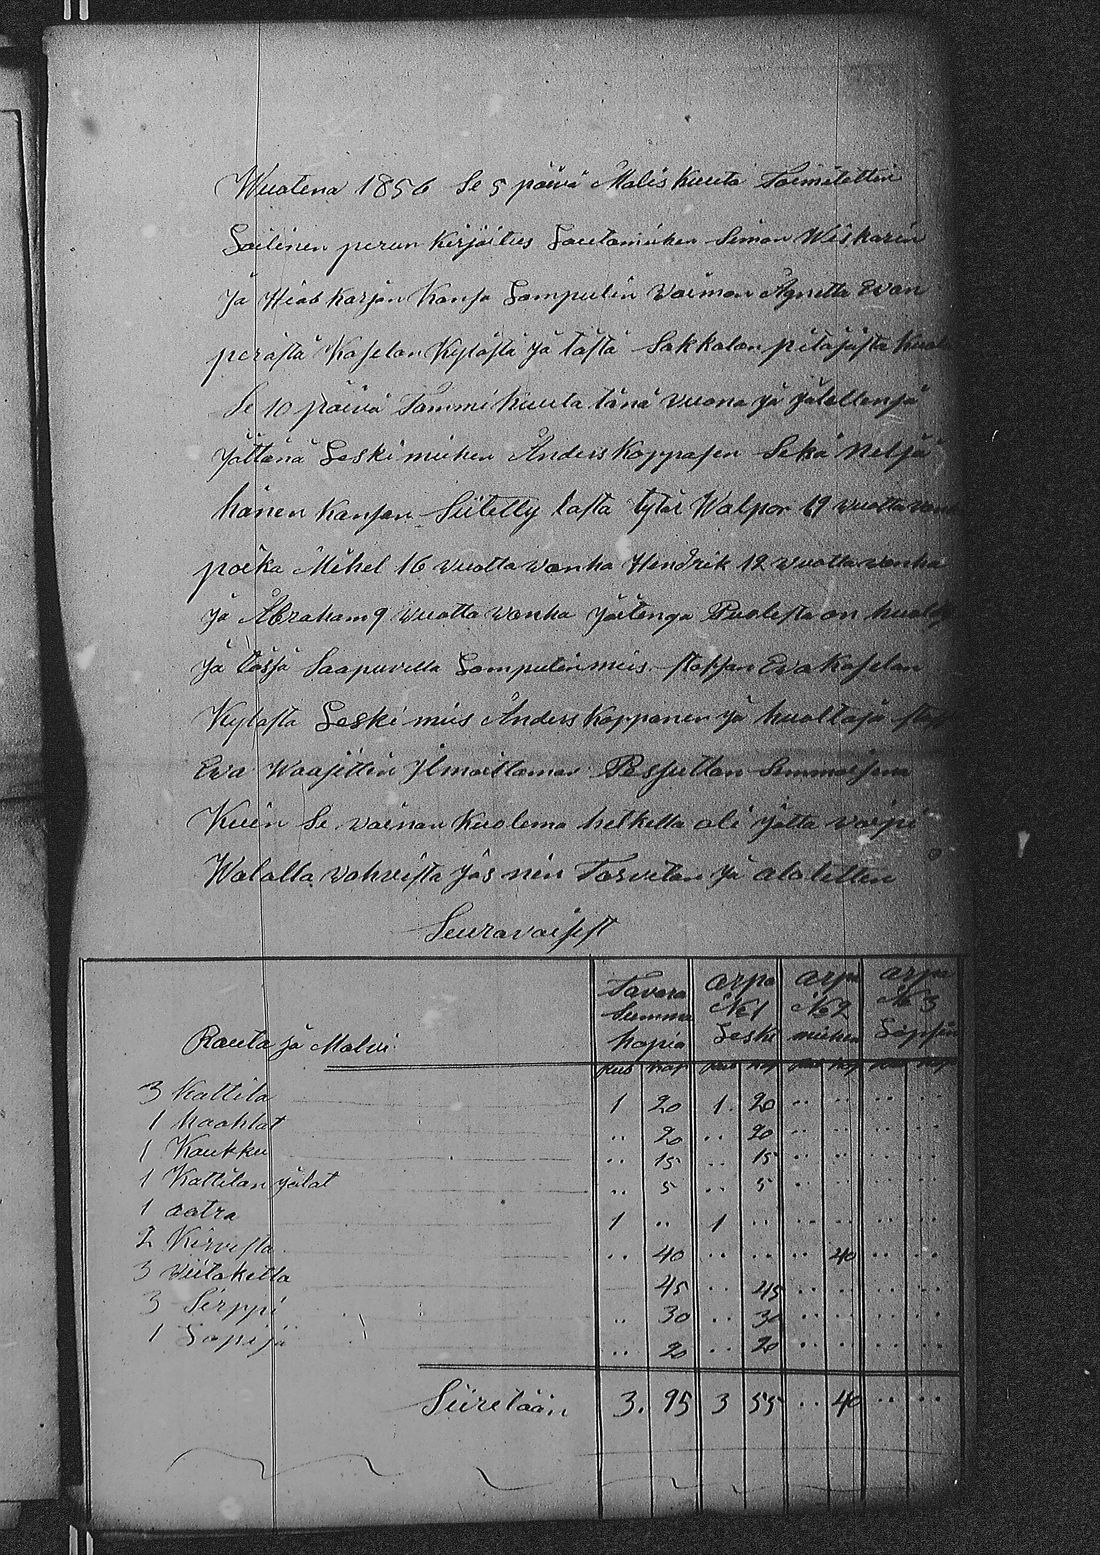 Wuotena 1856 Se 5 päivä Malis kuuta Toimitettin
Lailinen perun Kirjoitus Lautamiehen Simon Wiskarin
ja Kansa Lampuotin Vaimon Agnetta Evan
perästä Kaselan Kylästä ja tästä Sakkolan pitäjästä
Se 10 päivä Tammikuuta tänä vuona ja jälellensä
jättänä Leskimiehen Anders Koppasen Sekä Neljä
hänen kansan Siitetty lasta tytär Walpor 19 vuotta
poika Mihel 16 vuotta vanha Hendrik 12 vuotta vanha
ja Abraham 9 vuotta vanha joitenga Puolesta on
ja tässä Saapuvella Lampuotin mies Eva Kaselan
Kylästä Leskimies Anders Koppanen ja huoltaja
Eva Waajittin Ilmoittaman Pessuttan Semmoisena
Kuin Se vaimon Kuolema hetkella oli jätta
Walalla vahvista jos nin Tarvitan ja aletettin
Seuravaisest
Rauta ja Malmi Tavara Summa hopia arpa № 1 Leski arpa № 2 miehen arpa № 3 Lapsen
Rub kop Rub kop Rub kop Rub kop
3 Kattila 1 20 1 20 .. .. .. ..
1 haahlat .. 20 .. 20 .. .. .. ..
1 Kaukku .. 15 .. 15 .. .. .. ..
1 Kattilan jalat .. 5 .. 5 .. .. .. ..
1 aatra 1 .. 1 .. .. .. .. ..
2 Kirvesta .. 40 .. .. .. 40 .. ..
3 viitaketta 45 .. 45 .. .. .. ..
3 Sirppi .. 30 .. 30 .. .. .. ..
1 Lapija .. 20 .. 20 .. .. .. ..
Siiretään 3. 95 3 55 .. 40 .. ..